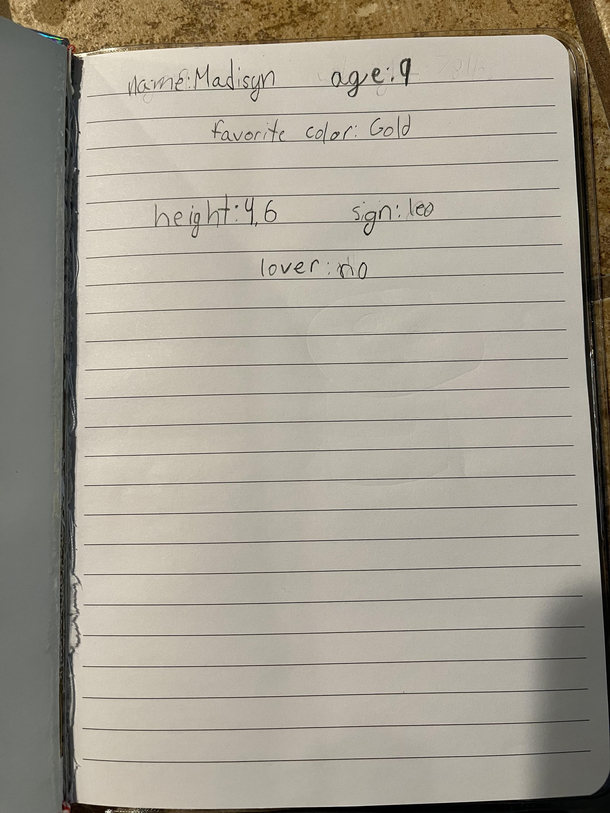 name: Madisyn age: 9
favorite color: Gold
height: 4,6 sign: leo
lover: no